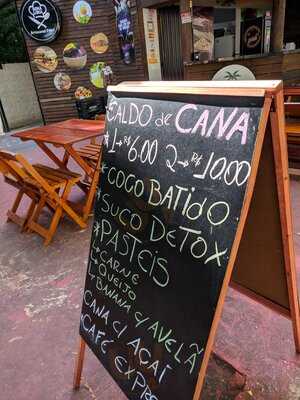 CALDO de CANA
1→R$6.00 2→R$10.00
COCO BATIDO
SUCO DETOX
PASTEIS
CARNE
QUEIJO
BANANA C/ AVELÃ
CANA C/ AÇAÍ
CAFÉ EXPRE
CALDO DE
CANA